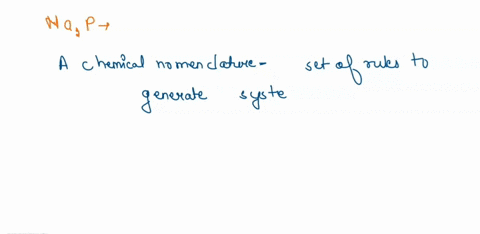 Na₃P →
A chemical nomenclature - set of rules to
generate syste